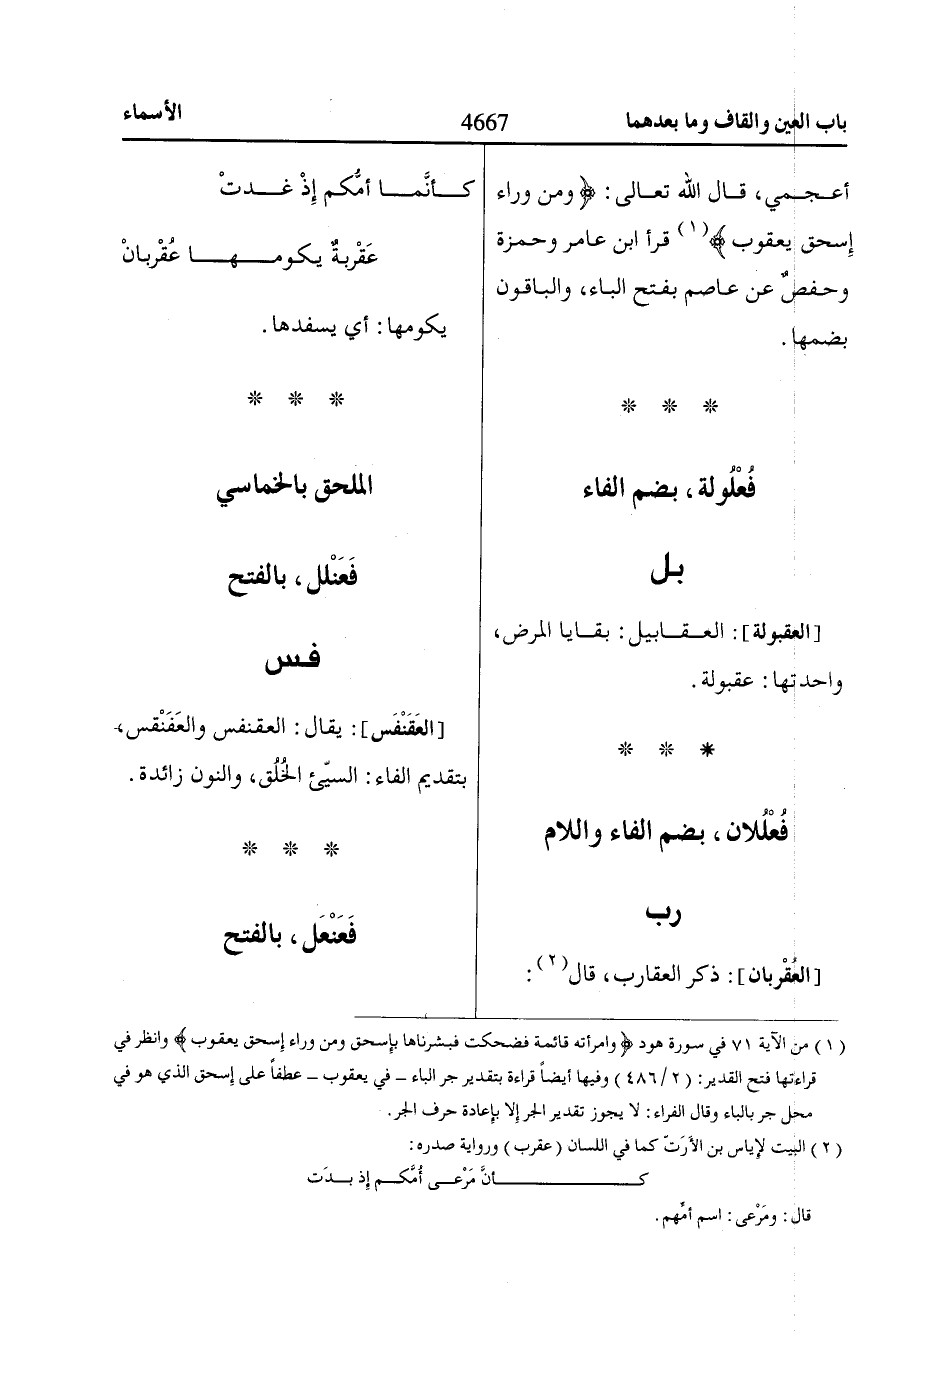 باب العين والقاف وما بعدهما 4667 الأسماء
أعجمي، قال الله تعالى: ﴿ومن وراء
إسحق يعقوب﴾(١) قرأ ابن عامر وحمزة
وحفصٌ عن عاصم بفتح الباء، والباقون
بضمها.
* * *
فُعْلُولة، بضم الفاء
بل
[العقبولة]: العقابيل: بقايا المرض،
واحدتها: عقبولة.
* * *
فُعْلُلان، بضم الفاء واللام
رب
[العُقْربان]: ذكر العقارب، قال(٢):
كأنَّما أمُّكم إذْ غدتْ
عَقْربةٌ يكومها عُقْربانْ
يكومها: أي يسفدها.
* * *
الملحق بالخماسي
فَعَنْلل، بالفتح
فس
[العَقَنْفَس]: يقال: العقنفس والعَفَنْقس،
بتقديم الفاء: السيّئ الخُلُق، والنون زائدة.
* * *
فَعَنْعَل، بالفتح
(١) من الآية ٧١ في سورة هود ﴿وامرأته قائمة فضحكت فبشرناها بإسحق ومن وراء إسحق يعقوب﴾ وانظر في
قراءتها فتح القدير: (٢/٤٨٦) وفيها أيضاً قراءة بتقدير جر الباء – في يعقوب – عطفاً على إسحق الذي هو في
محل جر بالباء وقال الفراء: لا يجوز تقدير الجر إلا بإعادة حرف الجر.
(٢) البيت لإياس بن الأرَتّ كما في اللسان (عقرب) ورواية صدره:
كأنَّ مَرْعى أُمَّكم إذ بدَت
قال: ومَرْعى: اسم أمِّهم.